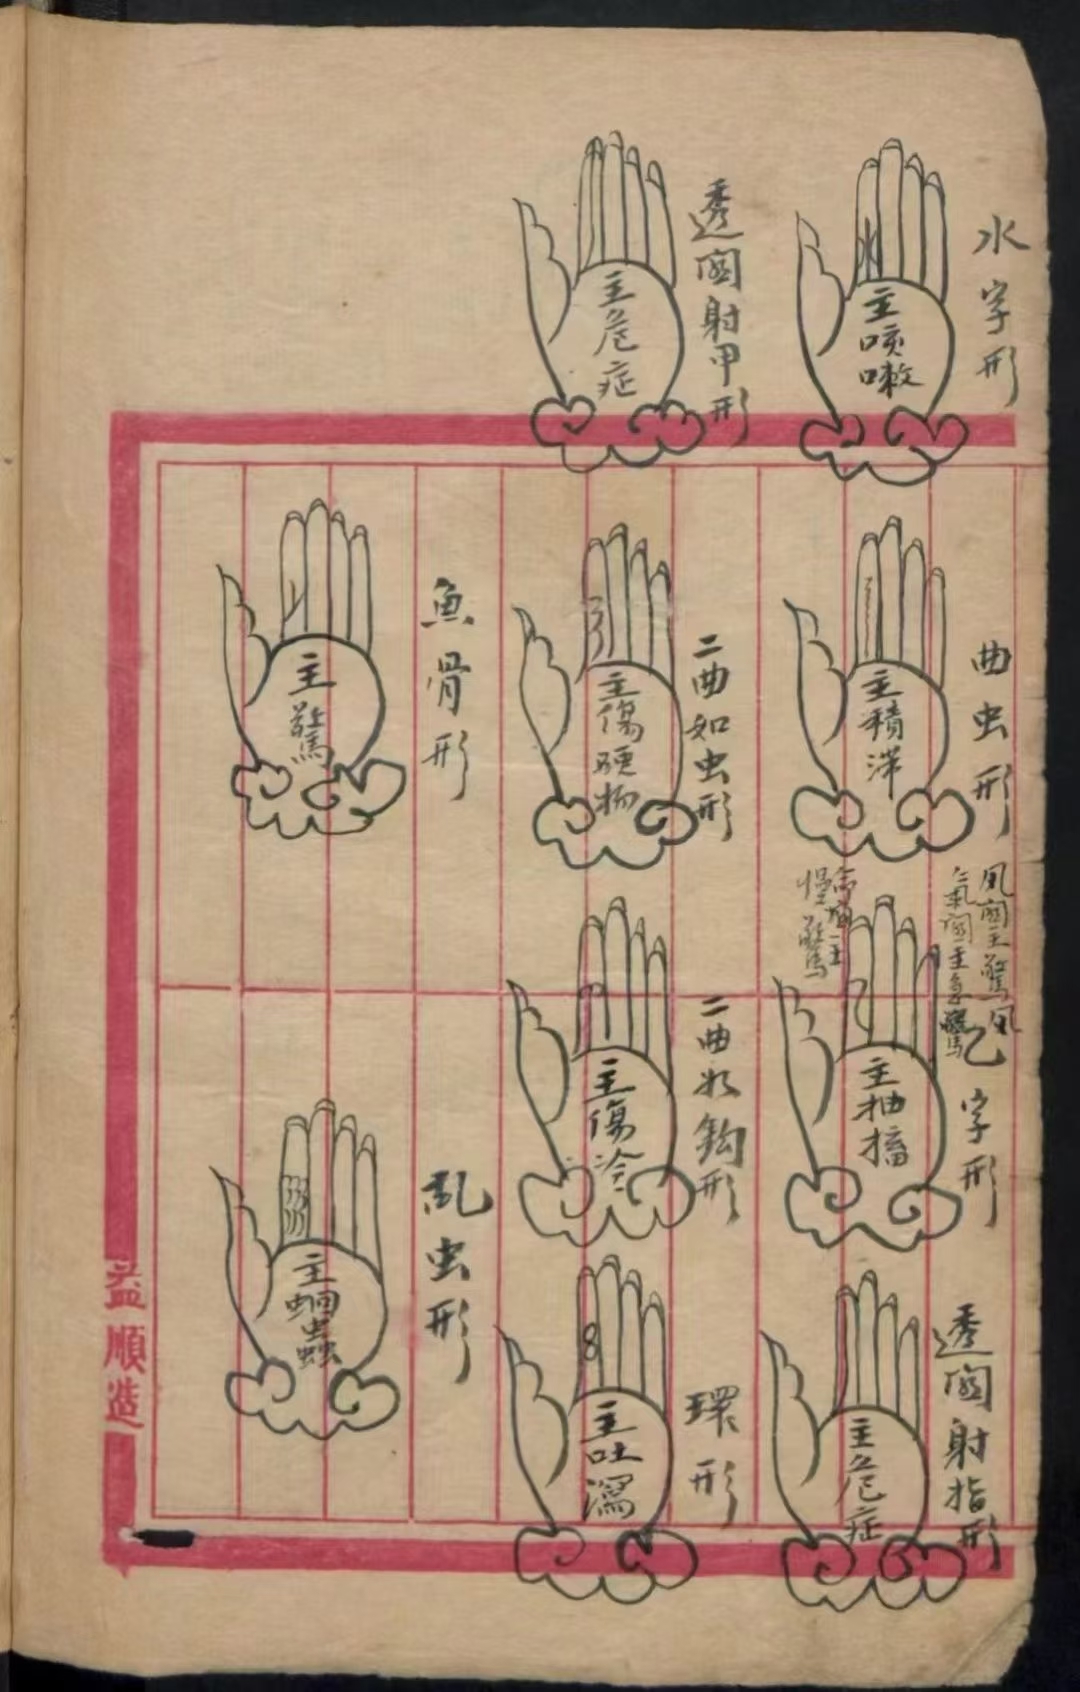 水字形
主咳嗽
曲虫形
主積滞
風關主驚風
氣關主急驚
命關主
慢驚
乙字形
主抽搐
透關射指形
主危症
透關射甲形
主危症
二曲如虫形
主傷硬物
二曲如鈎形
主傷冷
環形
主吐瀉
魚骨形
主驚
乱虫形
主蛔蟲
益順造